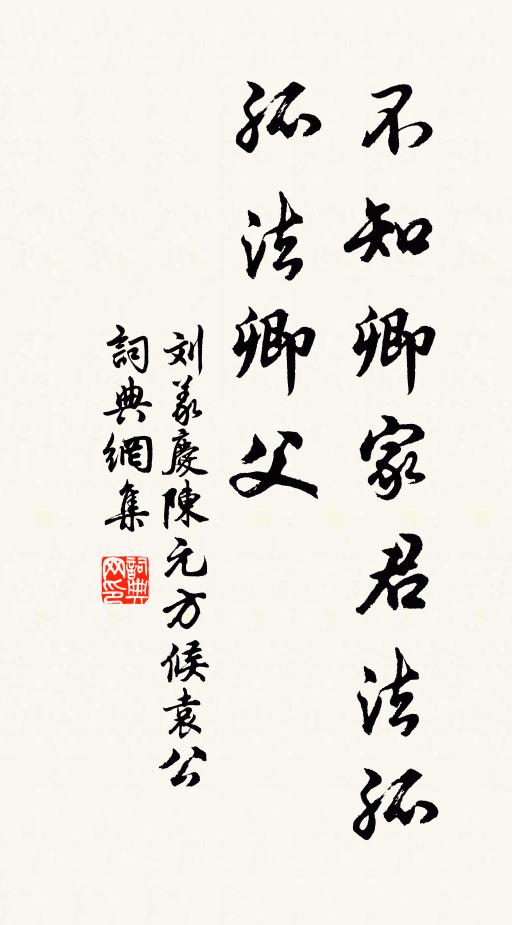 不知卿家君法孤
孤法卿父
刘義慶陳元方候袁公
詞典網集
詞典网印